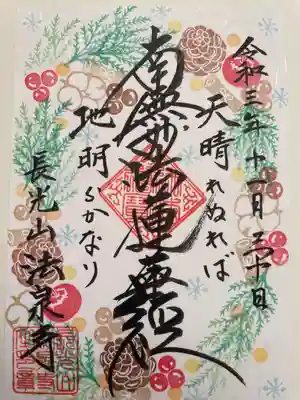 令和三年十二月二十日
天晴れぬれば
南無妙法蓮華経
地明らかなり
長光山 法泉寺